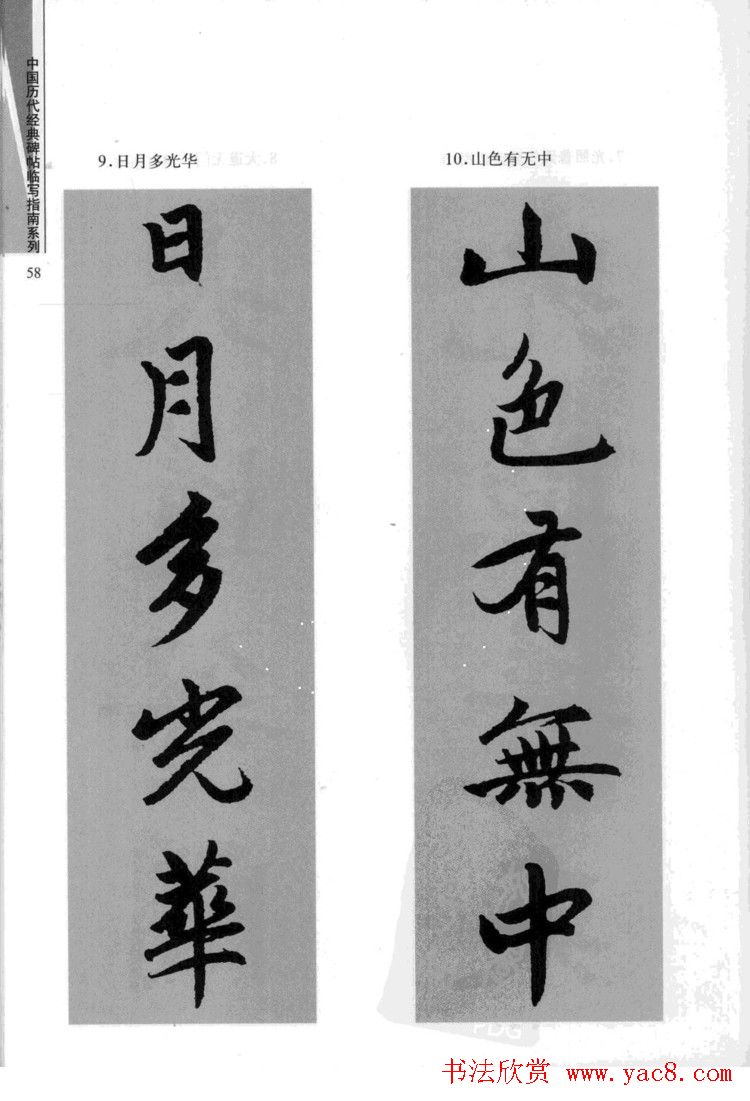 中国历代经典碑帖临写指南系列
58
9.日月多光华
日月多光華
10.山色有无中
山色有無中
PDG
书法欣赏 www.yac8.com